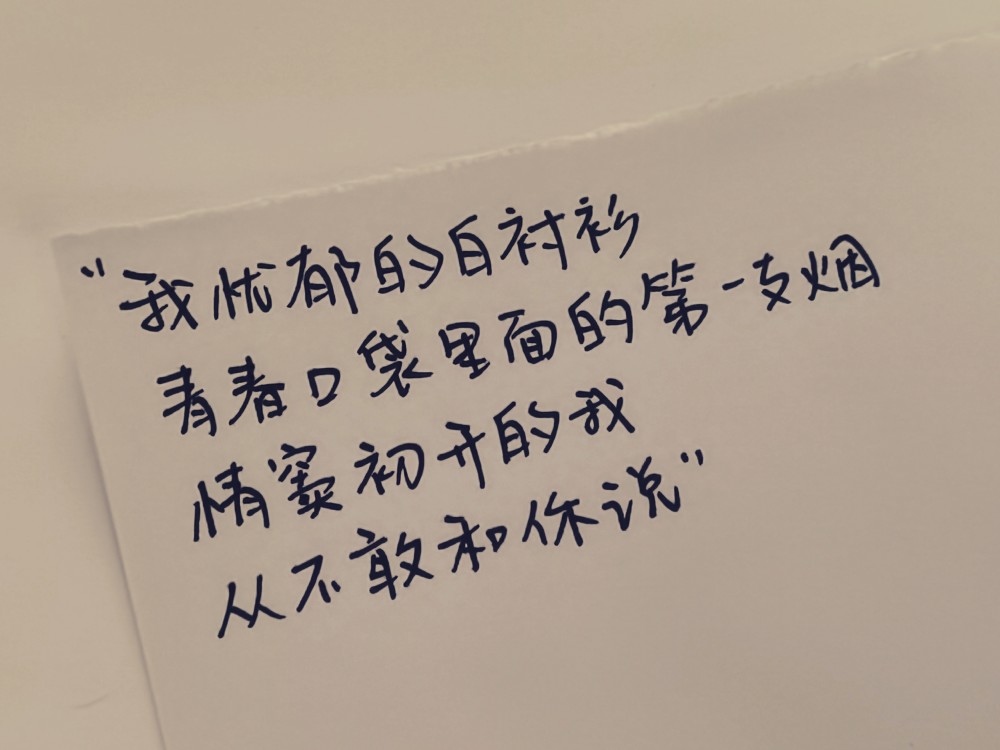 “我忧郁的白衬衫
青春口袋里面的第一支烟
情窦初开的我
从不敢和你说”